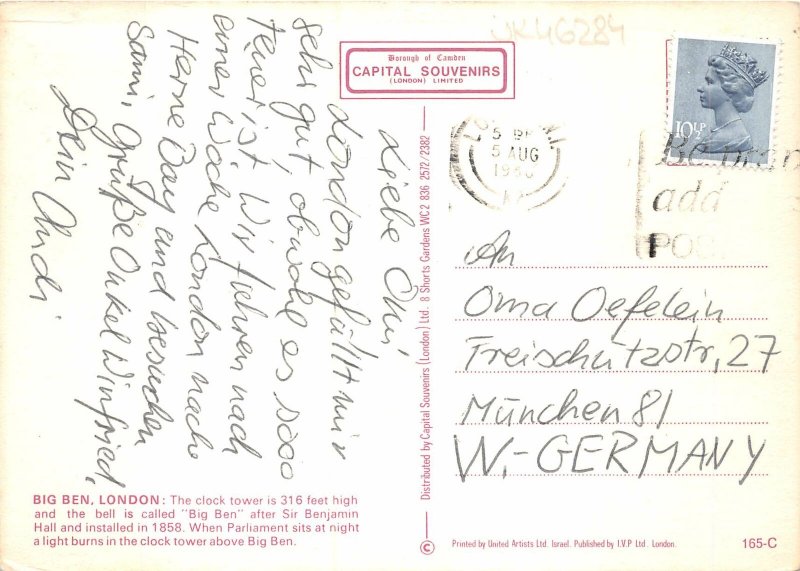 UK46284
Borough of Camden
CAPITAL SOUVENIRS
(LONDON) LIMITED
10½P
5 AUG
add
Liebe Omi
London gefällt mir
sehr gut, obwohl es sooo
teuer ist. Wir fahren nach
einer Woche London nach
Herne Bay und besuchen
Sami, Grüße Onkel Winfried,
Dein Andi
Distributed by Capital Souvenirs (London) Ltd. 8 Shorts Gardens WC2 836 2572/2382
An
Oma Oefelein
Freischützstr, 27
München 81
W.-GERMANY
BIG BEN, LONDON: The clock tower is 316 feet high
and the bell is called "Big Ben" after Sir Benjamin
Hall and installed in 1858. When Parliament sits at night
a light burns in the clock tower above Big Ben.
© Printed by United Artists Ltd. Israel. Published by I.V.P Ltd. London.
165-C